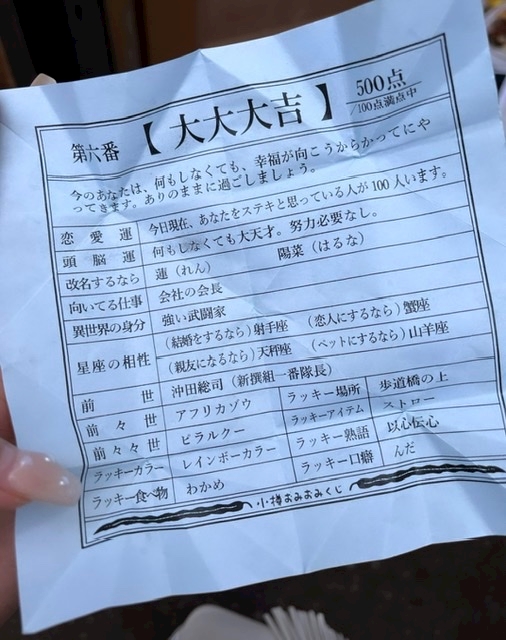 第六番 【大大大吉】 500点
/100点満点中
今のあなたは、何もしなくても、幸福が向こうからかってにや
ってきます。ありのままに過ごしましょう。
恋愛運 今日現在、あなたをステキと思っている人が100人います。
頭脳運 何もしなくても大天才。努力必要なし。
改名するなら 蓮（れん） 陽菜（はるな）
向いてる仕事 会社の会長
異世界の身分 強い武闘家
星座の相性 （結婚をするなら）射手座 （恋人にするなら）蟹座
（親友になるなら）天秤座 （ペットにするなら）山羊座
前世 沖田総司（新撰組一番隊長） ラッキー場所 歩道橋の上
前々世 アフリカゾウ ラッキーアイテム ストロー
前々々世 ピラルクー ラッキー熟語 以心伝心
ラッキーカラー レインボーカラー ラッキー口癖 んだ
ラッキー食べ物 わかめ
小樽おみおみくじ